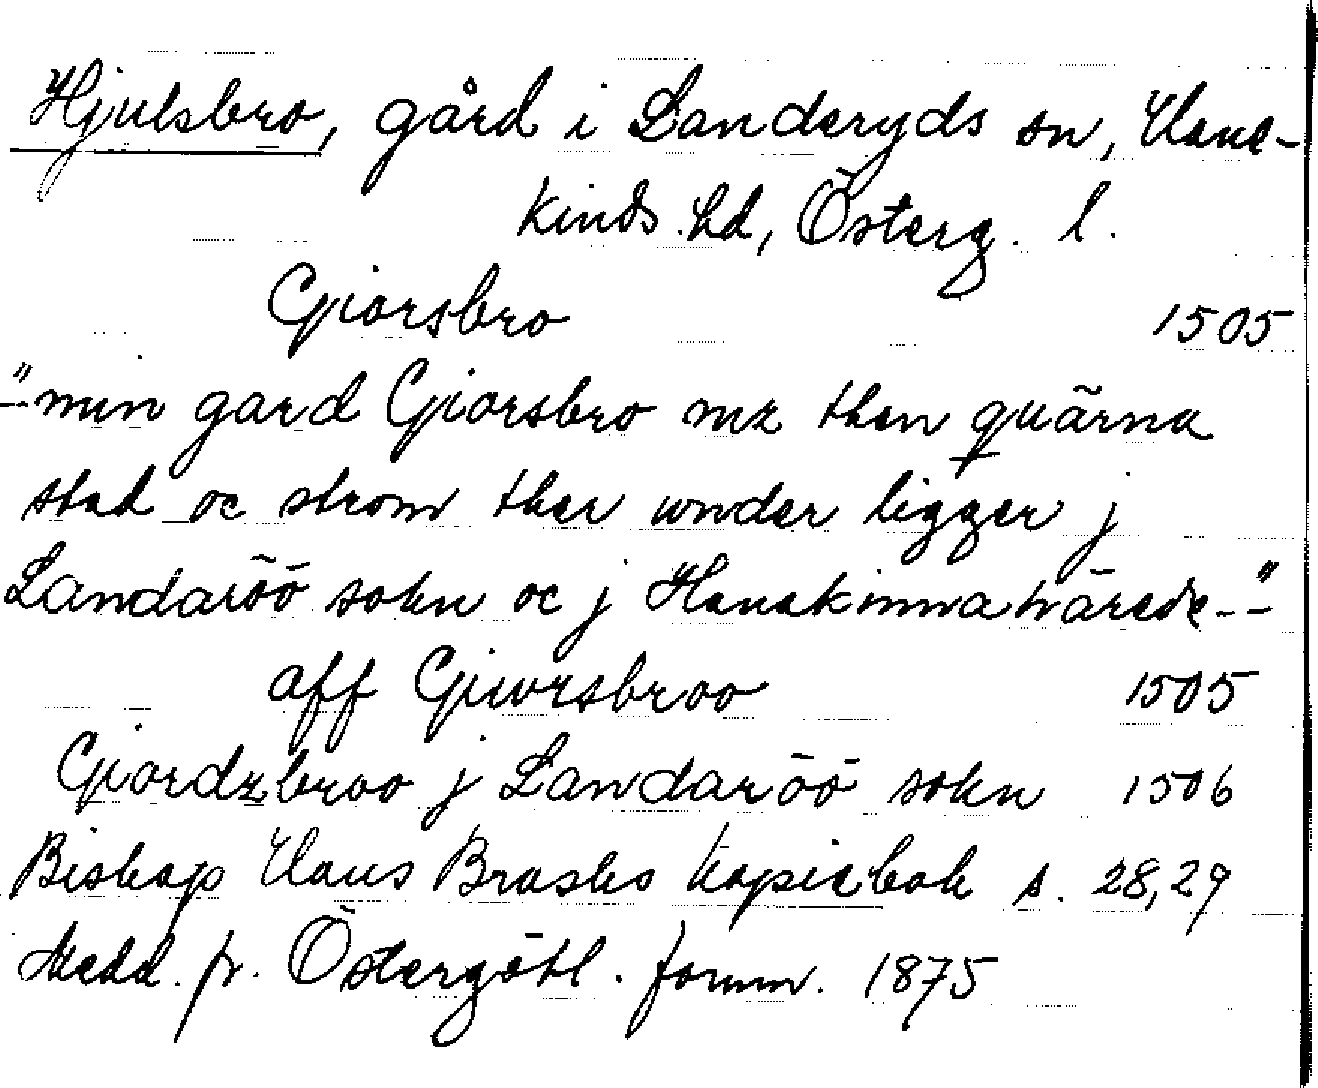 Hjulsbro, gård i Landeryds sn, Hane-
kinds hd, Österg. l.
Giorsbro 1505
"-min gard Giorsbro mz then quärna
stad oc strom ther wnder ligger j
Landaröö sokn oc j Hanakinnahärade--"
aff Giwrsbroo 1505
Giordzbroo j Landaröö sokn 1506
Biskop Hans Brasks kopiebok s. 28,29
Medd. fr. Östergötl. fornm. 1875